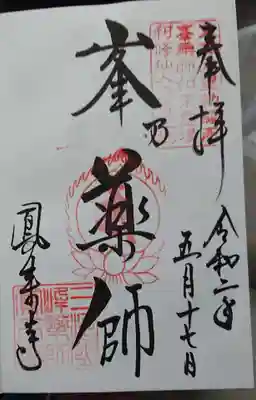 奉拝
令和二年
五月十七日
峯乃薬師
鳳来寺